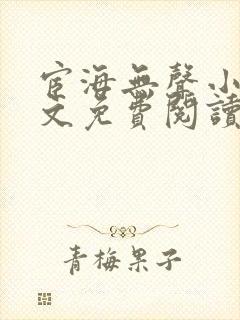 宦海無聲小
文免費閱讀
青梅果子